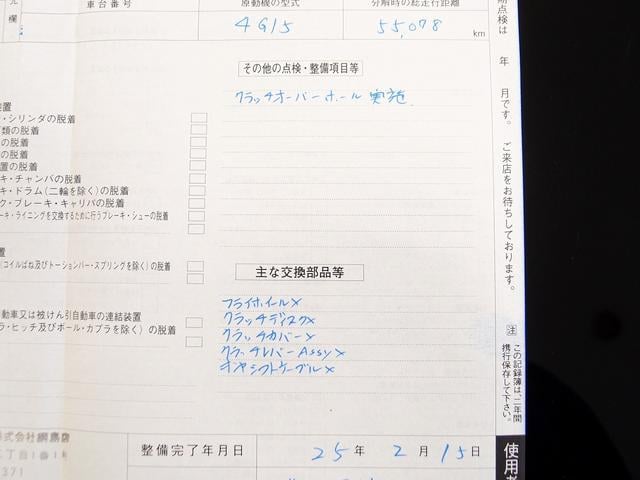 元
欄
車台番号
原動機の型式
分解時の総走行距離
4G15
55,078
km
その他の点検・整備項目等
クラッチオーバーホール 実施
装置
・シリンダの脱着
類の脱着
の脱着
の脱着
置の脱着
キ・チャンバの脱着
キ・ドラム(二輪を除く)の脱着
ク・ブレーキ・キャリパの脱着
ーキ・ライニングを交換するために行うブレーキ・シューの脱着
置
(コイルばね及びトーションバー・スプリングを除く)の脱着
動車又は被けん引自動車の連結装置
ラ・ヒッチ及びボール・カプラを除く)の脱着
主な交換部品等
フライホイール×
クラッチディスク×
クラッチカバー×
クラッチレバーAssy×
ギヤシフトケーブル×
式会社綱島店
二丁目1番1
371
整備完了年月日
25年 2月15日
期点検は 年 月です。 ご来店をお待ちしております。
注 この記録簿は、二年間
携行保存して下さい。
使用者